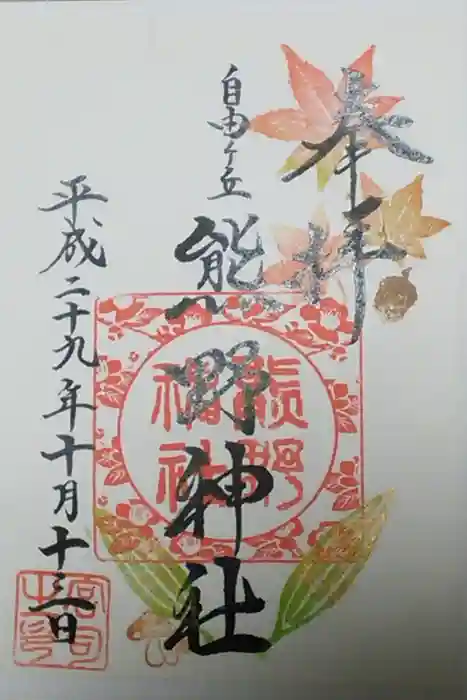 奉拝
自由ヶ丘
熊野神社
熊野
神社
平成二十九年十月十三日